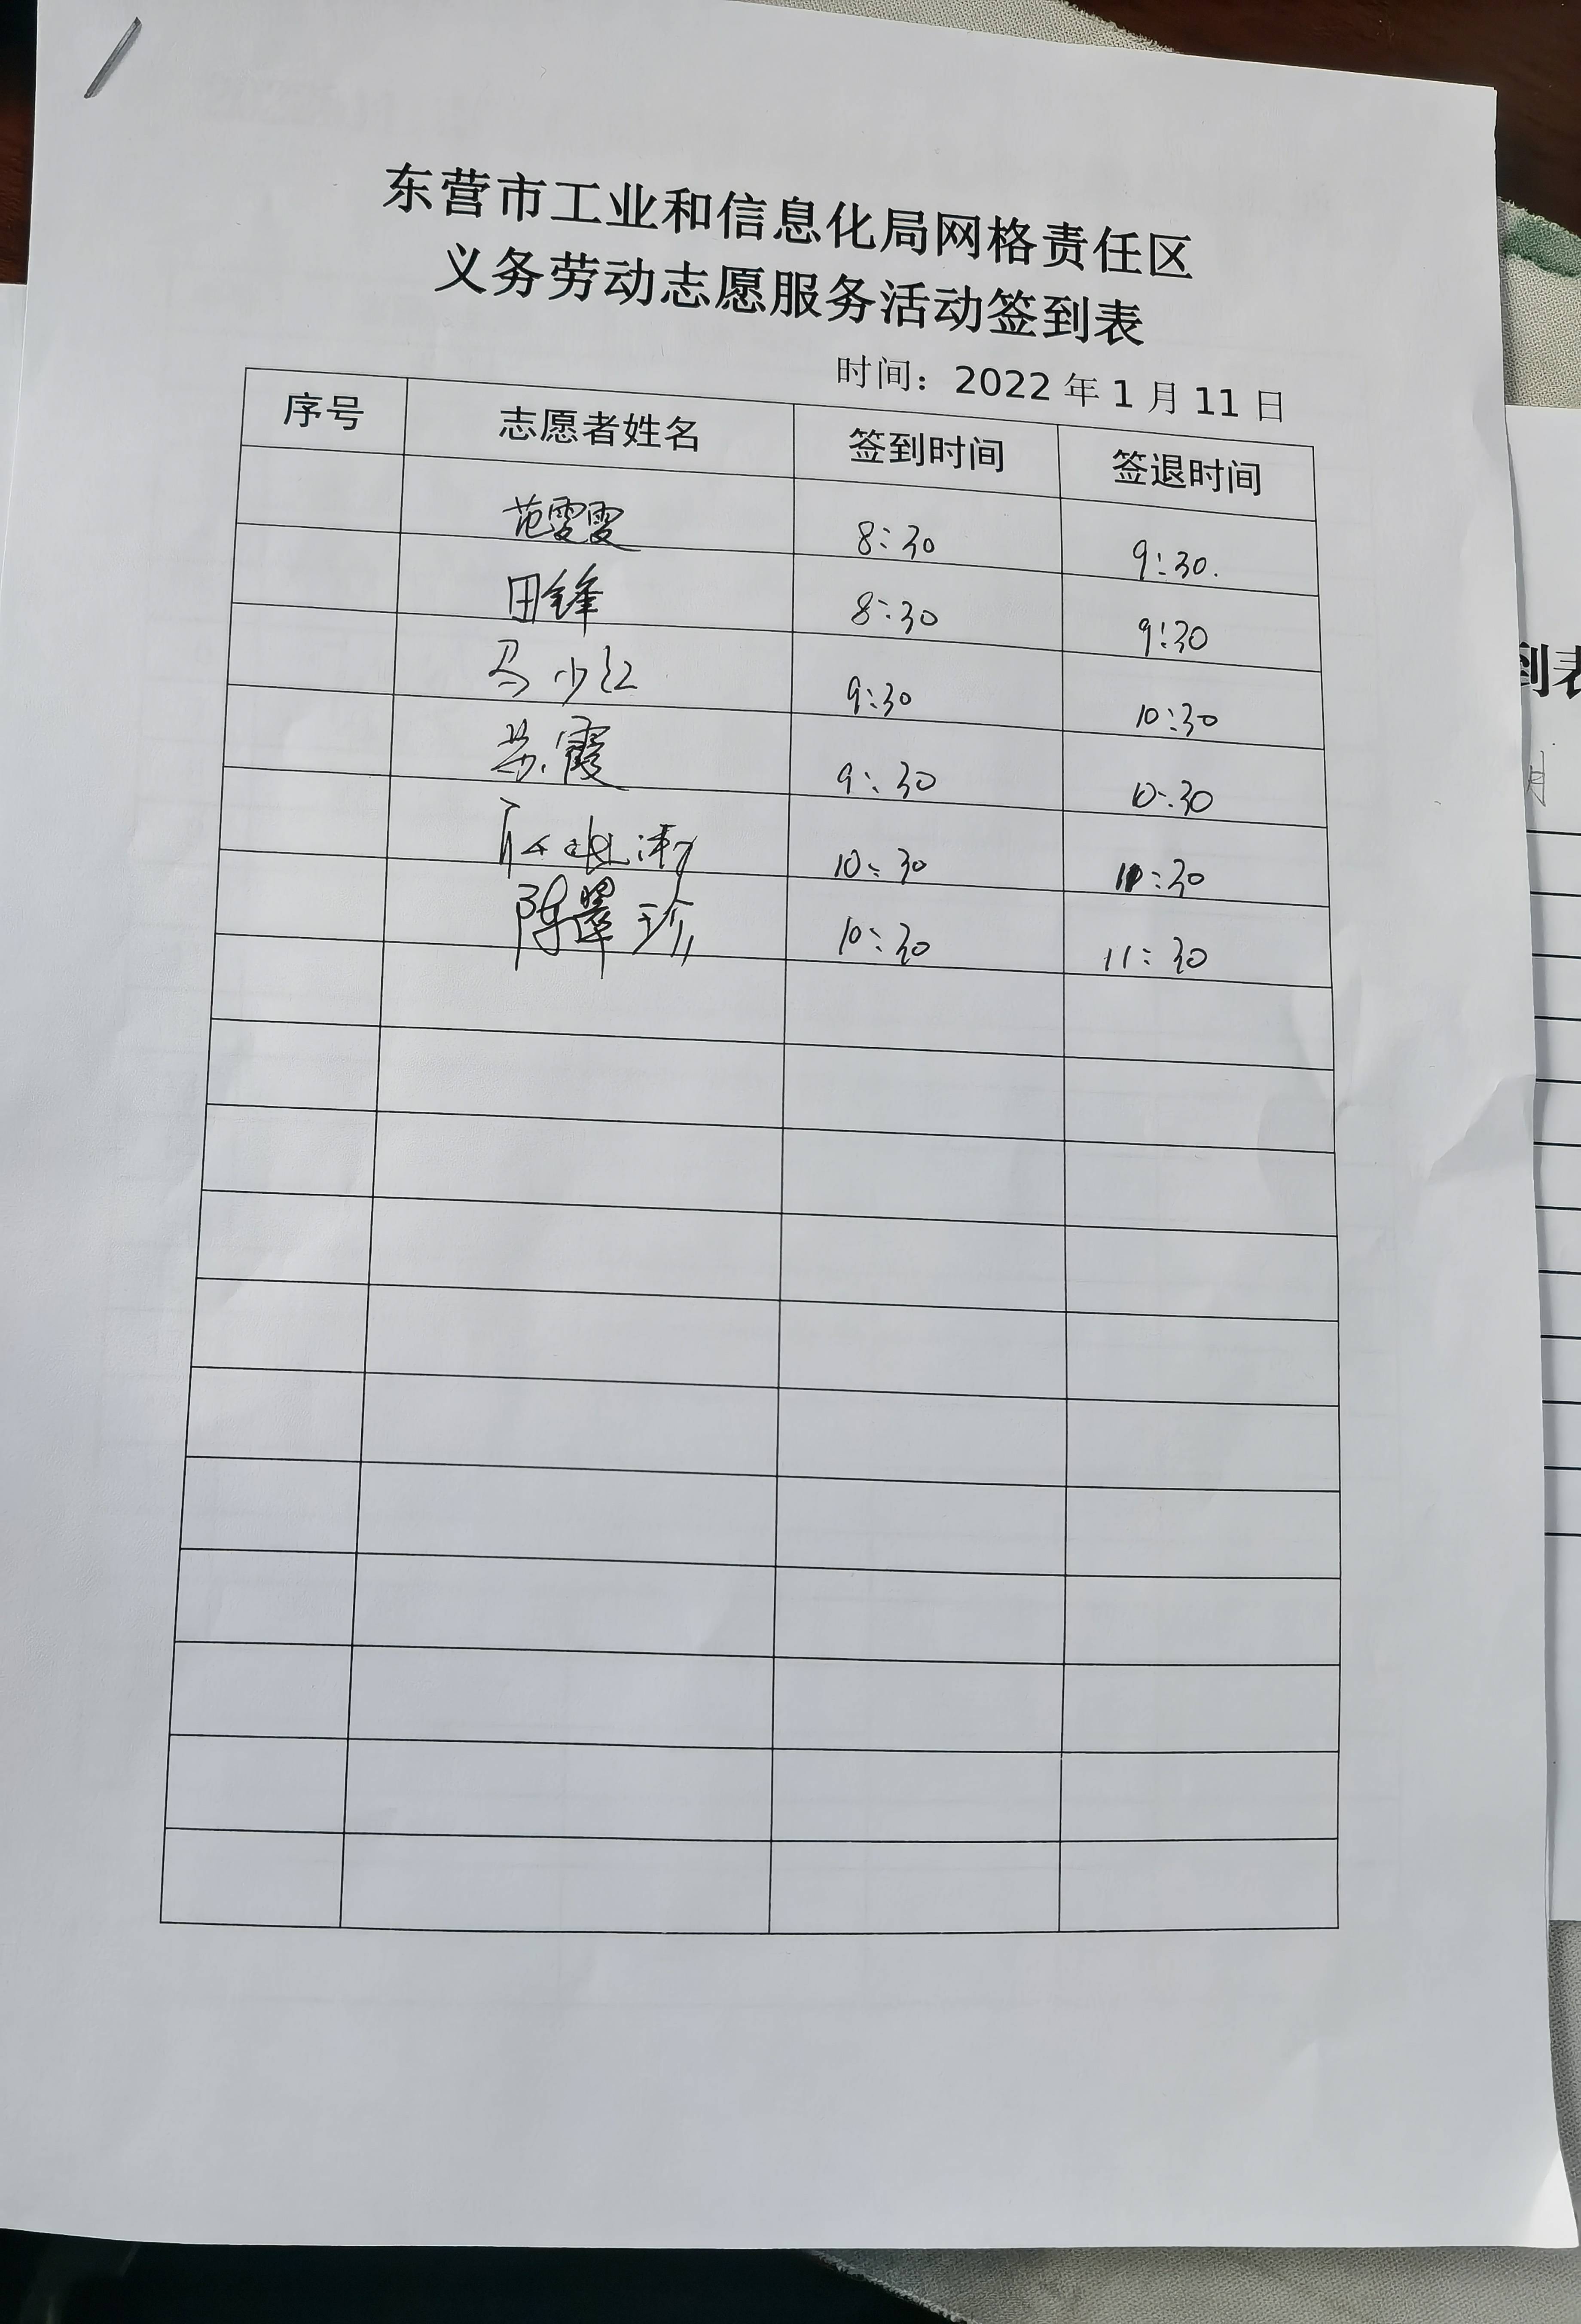 东营市工业和信息化局网格责任区
义务劳动志愿服务活动签到表
时间：2022 年 1 月 11 日
序号 志愿者姓名 签到时间 签退时间
范雯雯 8:30 9:30.
田锋 8:30 9:30
马少红 9:30 10:30
苏霞 9:30 10:30
10:30 11:30
陈翠珍 10:30 11:30
到表
月